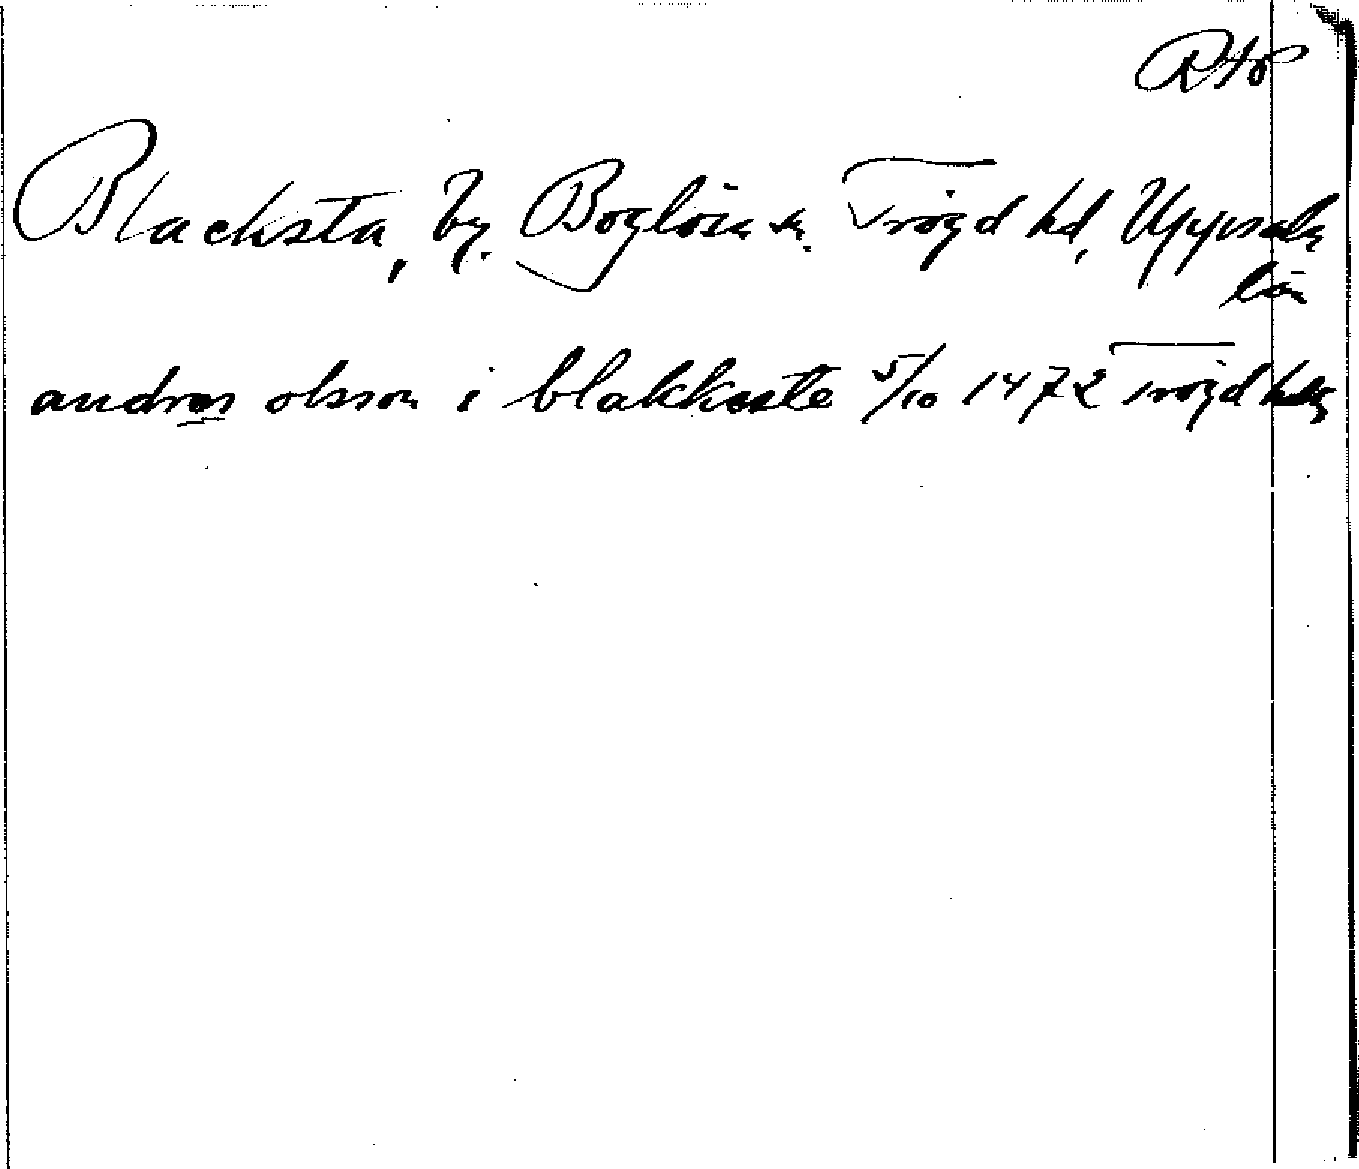 RAP
Blacksta, by. Boglösa sn. Trögd hd, Uppsala
län
andros olsson i blakkaste 5/10 1472 Trögd hds